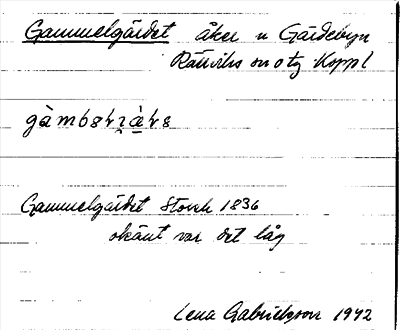 Gammelgärdet åker n Gärdebyn
Rättviks sn o tg Kopp l
Gammelgärdet Storsk 1836
okänt var det låg
Lena Gabrielsson 1942